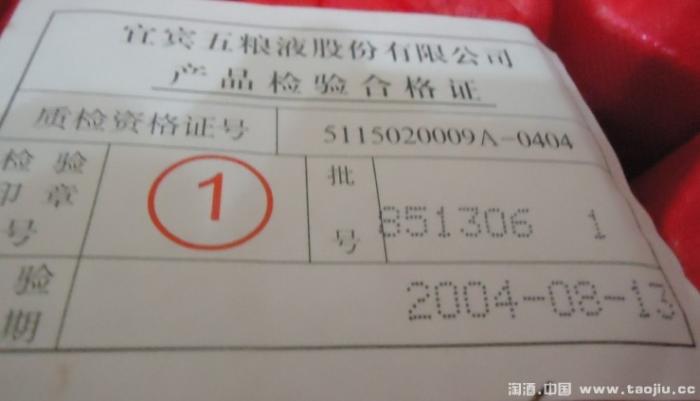 宜宾五粮液股份有限公司
产品检验合格证
质检资格证号 5115020009A-0404
检验印章号 1 批号 851306 1
验期 2004-08-13
淘酒.中国 www.taojiu.cc